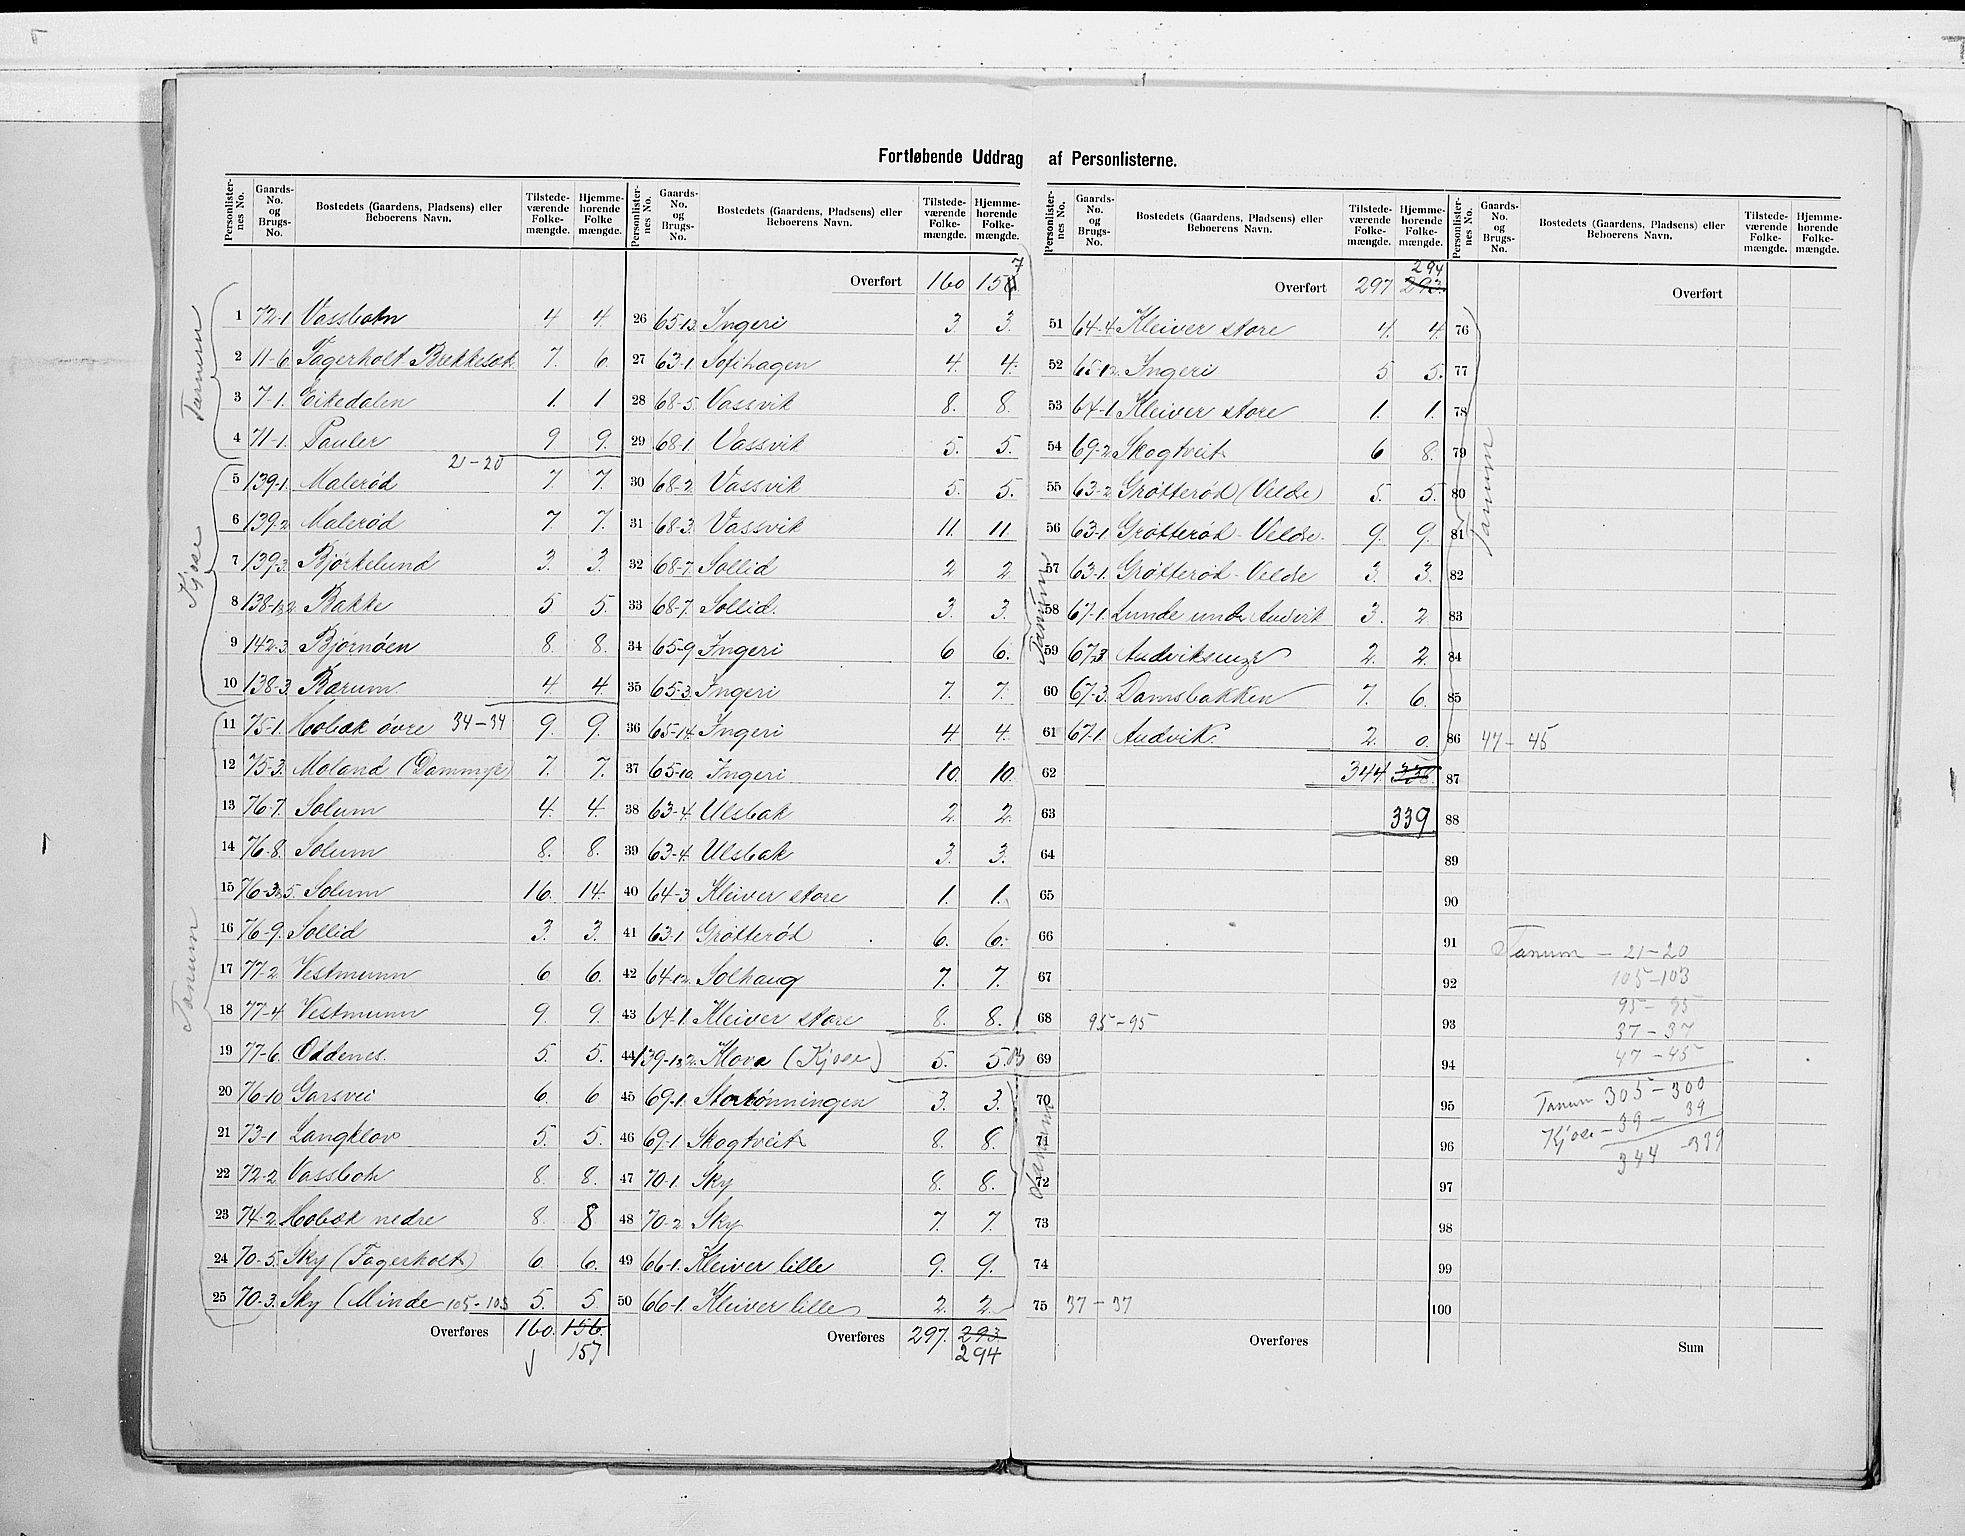 Fortløbende Uddrag af Personlisterne.
Personlister-nes No. Gaards-No. og Brugs-No. Bostedets (Gaardens, Pladsens) eller Beboerens Navn. Tilstede-værende Folke-mængde. Hjemme-hørende Folke mængde.
1 72-1 Vassbotn 4 4.
2 11-6 Fagerholt Bækkeløk. 7. 6.
3 7-1. Eikedalen 1. 1
4 71-1. Pauler 9 9.
21-20
5 139-1. Malerød 7. 7.
6 139-2 Malerød 7 7.
7 139-3. Bjørkelund 3. 3.
8 138-1,2. Bakke 5 5.
9 142-3 Bjørnøen 8. 8.
10 138-3. Barum. 4. 4
11 75-1. Hobæk øvre 34-34 9. 9.
12 75-3. Moland (Dammyr) 7. 7.
13 76-7. Solum 4. 4.
14 76-8. Solum 8. 8.
15 76-3,5. Solum 16. 14.
16 76-9. Sollid 3. 3.
17 77-2. Vestmunn 6 6.
18 77-4. Vestmunn 9. 9.
19 77-6. Oddenes. 5. 5.
20 76-10 Garsvei 6. 6
21 73-1 Langklov 5. 5.
22 72-2 Vassbotn 8. 8.
23 74-2. Hobæk nedre 8. 8
24 70-5. Sky (Fagerholt) 6. 6.
25 70-3. Sky (Minde 105-103 5. 5.
Overføres 160. 156.
157
Tanum
Kjose
Tanum
Personlister-nes No. Gaards-No. og Brugs-No. Bostedets (Gaardens, Pladsens) eller Beboerens Navn. Tilstede-værende Folke-mængde. Hjemme-hørende Folke-mængde.
Overført 160 157
26 65-13. Ingeri 3. 3.
27 63-1. Sofihagen 4. 4.
28 68-5. Vassvik 8. 8.
29 68-1. Vassvik 5. 5.
30 68-2. Vassvik 5. 5.
31 68-3. Vassvik 11. 11.
32 68-7. Sollid 2 2
33 68-7. Sollid. 3. 3.
34 65-9 Ingeri 6 6.
35 65-3. Ingeri 7. 7.
36 65-14. Ingeri 4 4.
37 65-10. Ingeri 10. 10.
38 63-4. Ulsbak 2. 2.
39 63-4. Ulsbak 3. 3.
40 64-3. Kleiver store 1. 1.
41 63-1 Grøtterød 6. 6.
42 64-12. Solhaug 7. 7.
43 64-1. Kleiver store 8. 8.
44 139-1,2. Klova (Kjose) 5. 5.
45 69-1. Storrønningen 3. 3.
46 69-1 Skogtveit 8. 8.
47 70-1. Sky 8. 8.
48 70-2. Sky 7. 7.
49 66-1. Kleiver lille 9. 9.
50 66-1. Kleiver lille 2. 2.
Overføres 297. 293
294
Personlister-nes No. Gaards-No. og Brugs-No. Bostedets (Gaardens, Pladsens) eller Beboerens Navn. Tilstede-værende Folke-mængde. Hjemme-hørende Folke-mængde.
294
Overført 297 293.
51 64-4. Kleiver store 4. 4.
52 65-12. Ingeri 5 5.
53 64-1. Kleiver store 1. 1.
54 69-2. Skogtveit 6 8.
55 63-2. Grøtterød (Velde) 5. 5.
56 63-1. Grøtterød - Velde. 9. 9.
57 63-1. Grøtterød - Velde 3. 3.
58 67-1. Lunde under Audvik 3. 2
59 67-3. 2. 2.
60 67-3. Damsbakken 7. 6.
61 67-1. Audvik. 2. 0.
62 344. 338.
63 339
64
65
66
67
68 95-95
69
70
71
72
73
74
75 37-37
Overføres
Tanum
Tanum
Personlister-nes No. Gaards-No. og Brugs-No. Bostedets (Gaardens, Pladsens) eller Beboerens Navn. Tilstede-værende Folke-mængde. Hjemme-hørende Folke-mængde.
Overført
76
77
78
79
80
81
82
83
84
85
86 47-45
87
88
89
90
91 Tanum - 21-20
92 105-103
93 95-95
37-37
94 47-45
95 Tanum 305-300
96 Kjose - 39 - 39
344 - 339
97
98
99
100
Sum
Tanum